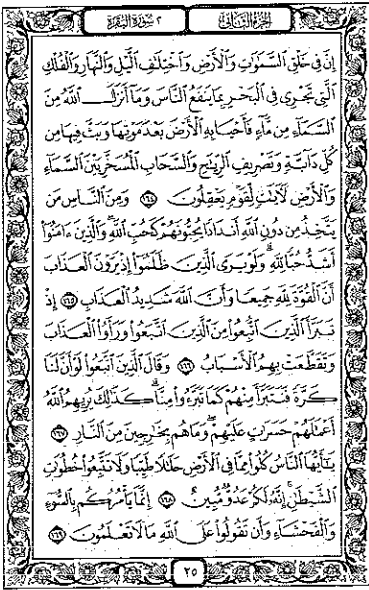 الجزء الثاني
٢ سورة البقرة
إِنَّ فِي خَلْقِ ٱلسَّمَٰوَٰتِ وَٱلْأَرْضِ وَٱخْتِلَٰفِ ٱلَّيْلِ وَٱلنَّهَارِ وَٱلْفُلْكِ
ٱلَّتِي تَجْرِي فِي ٱلْبَحْرِ بِمَا يَنفَعُ ٱلنَّاسَ وَمَآ أَنزَلَ ٱللَّهُ مِنَ
ٱلسَّمَآءِ مِن مَّآءٍ فَأَحْيَا بِهِ ٱلْأَرْضَ بَعْدَ مَوْتِهَا وَبَثَّ فِيهَا مِن
كُلِّ دَآبَّةٍ وَتَصْرِيفِ ٱلرِّيَٰحِ وَٱلسَّحَابِ ٱلْمُسَخَّرِ بَيْنَ ٱلسَّمَآءِ
وَٱلْأَرْضِ لَءَايَٰتٍ لِّقَوْمٍ يَعْقِلُونَ ١٦٤ وَمِنَ ٱلنَّاسِ مَن
يَتَّخِذُ مِن دُونِ ٱللَّهِ أَندَادًا يُحِبُّونَهُمْ كَحُبِّ ٱللَّهِ وَٱلَّذِينَ ءَامَنُوٓا۟
أَشَدُّ حُبًّا لِّلَّهِ وَلَوْ يَرَى ٱلَّذِينَ ظَلَمُوٓا۟ إِذْ يَرَوْنَ ٱلْعَذَابَ
أَنَّ ٱلْقُوَّةَ لِلَّهِ جَمِيعًا وَأَنَّ ٱللَّهَ شَدِيدُ ٱلْعَذَابِ ١٦٥ إِذْ
تَبَرَّأَ ٱلَّذِينَ ٱتُّبِعُوا۟ مِنَ ٱلَّذِينَ ٱتَّبَعُوا۟ وَرَأَوُا۟ ٱلْعَذَابَ
وَتَقَطَّعَتْ بِهِمُ ٱلْأَسْبَابُ ١٦٦ وَقَالَ ٱلَّذِينَ ٱتَّبَعُوا۟ لَوْ أَنَّ لَنَا
كَرَّةً فَنَتَبَرَّأَ مِنْهُمْ كَمَا تَبَرَّءُوا۟ مِنَّا كَذَٰلِكَ يُرِيهِمُ ٱللَّهُ
أَعْمَٰلَهُمْ حَسَرَٰتٍ عَلَيْهِمْ وَمَا هُم بِخَٰرِجِينَ مِنَ ٱلنَّارِ ١٦٧
يَٰٓأَيُّهَا ٱلنَّاسُ كُلُوا۟ مِمَّا فِي ٱلْأَرْضِ حَلَٰلًا طَيِّبًا وَلَا تَتَّبِعُوا۟ خُطُوَٰتِ
ٱلشَّيْطَٰنِ إِنَّهُۥ لَكُمْ عَدُوٌّ مُّبِينٌ ١٦٨ إِنَّمَا يَأْمُرُكُم بِٱلسُّوٓءِ
وَٱلْفَحْشَآءِ وَأَن تَقُولُوا۟ عَلَى ٱللَّهِ مَا لَا تَعْلَمُونَ ١٦٩
٢٥